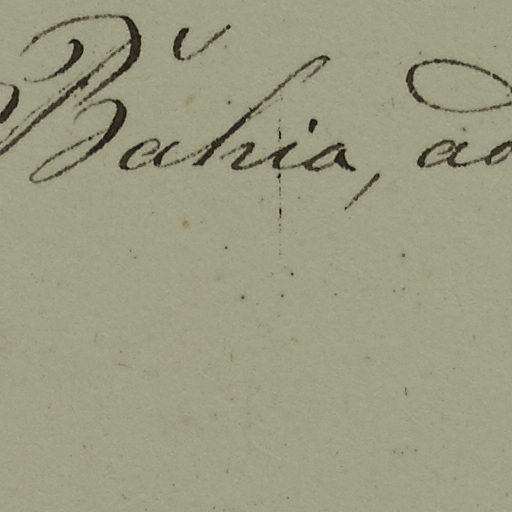 Bahia, ao